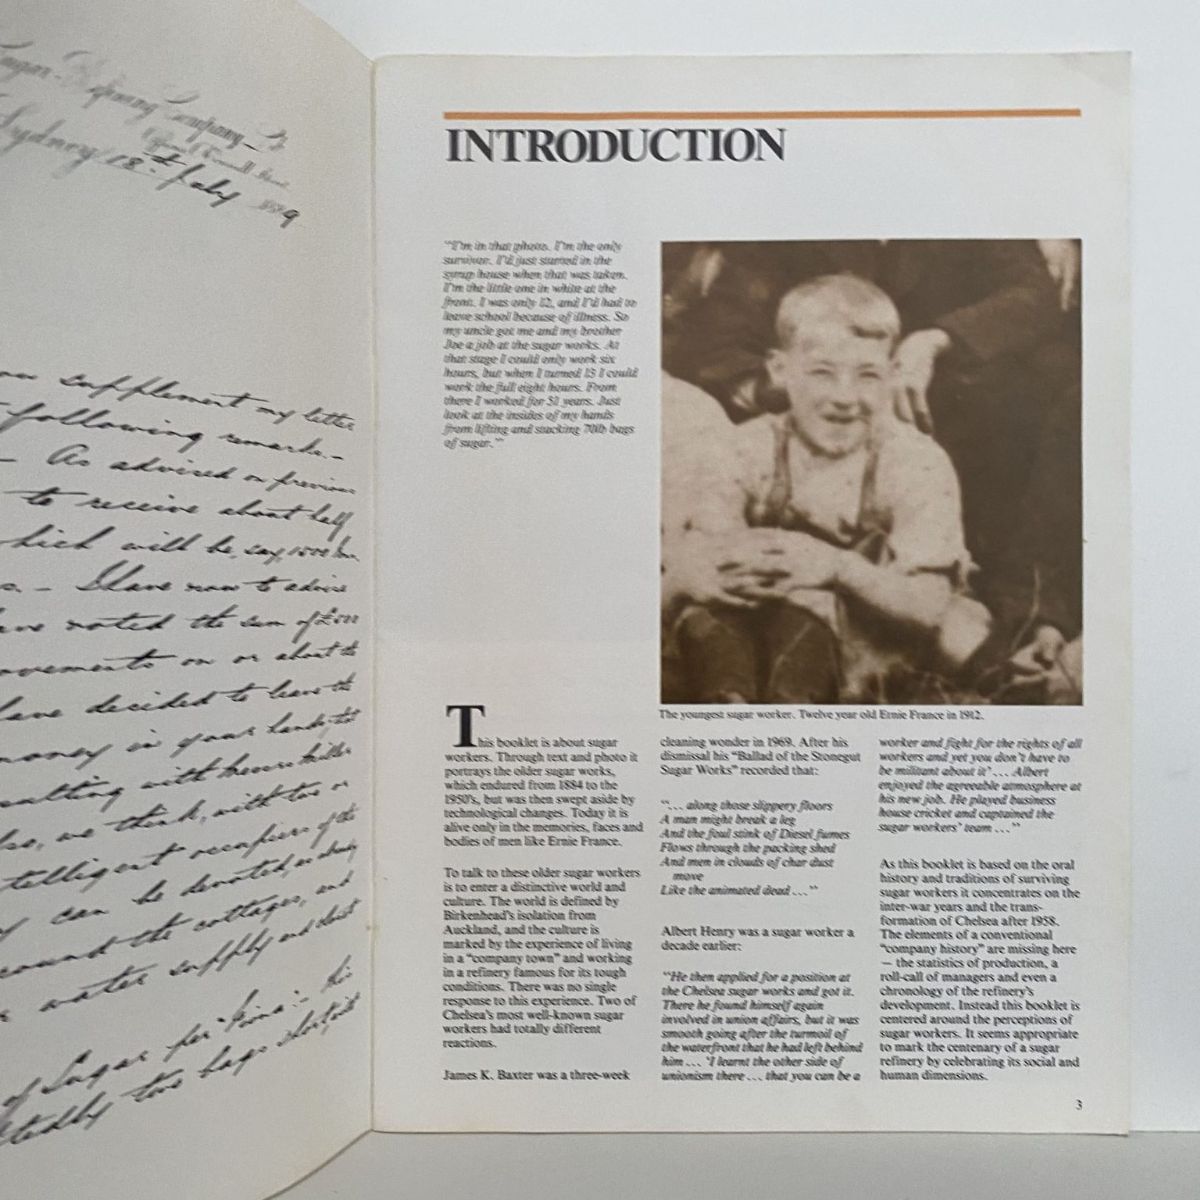 Sugar Refining Company
Sydney 18th July
supplement my letter
following remarks. —
— As advised on previous
to receive about half
which will be, say, 1500
— Have now to advise
have voted the sum of £500
improvements on or about the
have decided to leave the
money in your hands,
with
we think, with two or
intelligent occupiers of the
can be devoted,
around the cottages, and
water supply and
of Sugar per
bags
INTRODUCTION
"I'm in that photo. I'm the only
survivor. I'd just started in the
syrup house when that was taken.
I'm the little one in white at the
front. I was only 12, and I'd had to
leave school because of illness. So
my uncle got me and my brother
Joe a job at the sugar works. At
that stage I could only work six
hours, but when I turned 13 I could
work the full eight hours. From
there I worked for 51 years. Just
look at the insides of my hands
from lifting and stacking 70lb bags
of sugar."
The youngest sugar worker. Twelve year old Ernie France in 1912.
This booklet is about sugar
workers. Through text and photo it
portrays the older sugar works,
which endured from 1884 to the
1950's, but was then swept aside by
technological changes. Today it is
alive only in the memories, faces and
bodies of men like Ernie France.
To talk to these older sugar workers
is to enter a distinctive world and
culture. The world is defined by
Birkenhead's isolation from
Auckland, and the culture is
marked by the experience of living
in a "company town" and working
in a refinery famous for its tough
conditions. There was no single
response to this experience. Two of
Chelsea's most well-known sugar
workers had totally different
reactions.
James K. Baxter was a three-week
cleaning wonder in 1969. After his
dismissal his "Ballad of the Stonegut
Sugar Works" recorded that:
"... along those slippery floors
A man might break a leg
And the foul stink of Diesel fumes
Flows through the packing shed
And men in clouds of char dust
move
Like the animated dead ..."
Albert Henry was a sugar worker a
decade earlier:
"He then applied for a position at
the Chelsea sugar works and got it.
There he found himself again
involved in union affairs, but it was
smooth going after the turmoil of
the waterfront that he had left behind
him ... 'I learnt the other side of
unionism there ... that you can be a
worker and fight for the rights of all
workers and yet you don't have to
be militant about it' ... Albert
enjoyed the agreeable atmosphere at
his new job. He played business
house cricket and captained the
sugar workers' team ..."
As this booklet is based on the oral
history and traditions of surviving
sugar workers it concentrates on the
inter-war years and the trans-
formation of Chelsea after 1958.
The elements of a conventional
"company history" are missing here
— the statistics of production, a
roll-call of managers and even a
chronology of the refinery's
development. Instead this booklet is
centered around the perceptions of
sugar workers. It seems appropriate
to mark the centenary of a sugar
refinery by celebrating its social and
human dimensions.
3